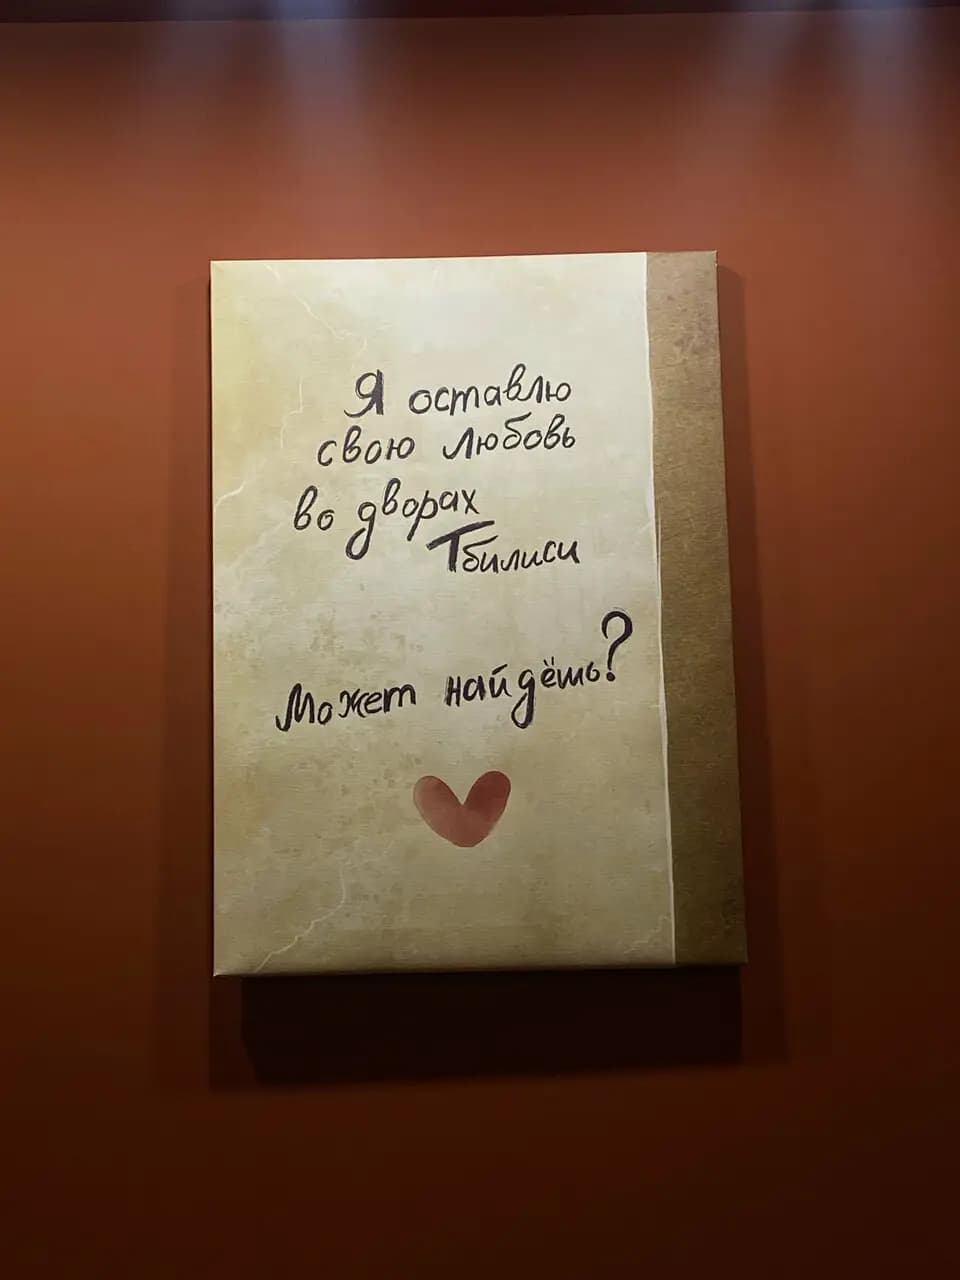 Я оставлю
свою любовь
во дворах
Тбилиси
Может найдёшь?